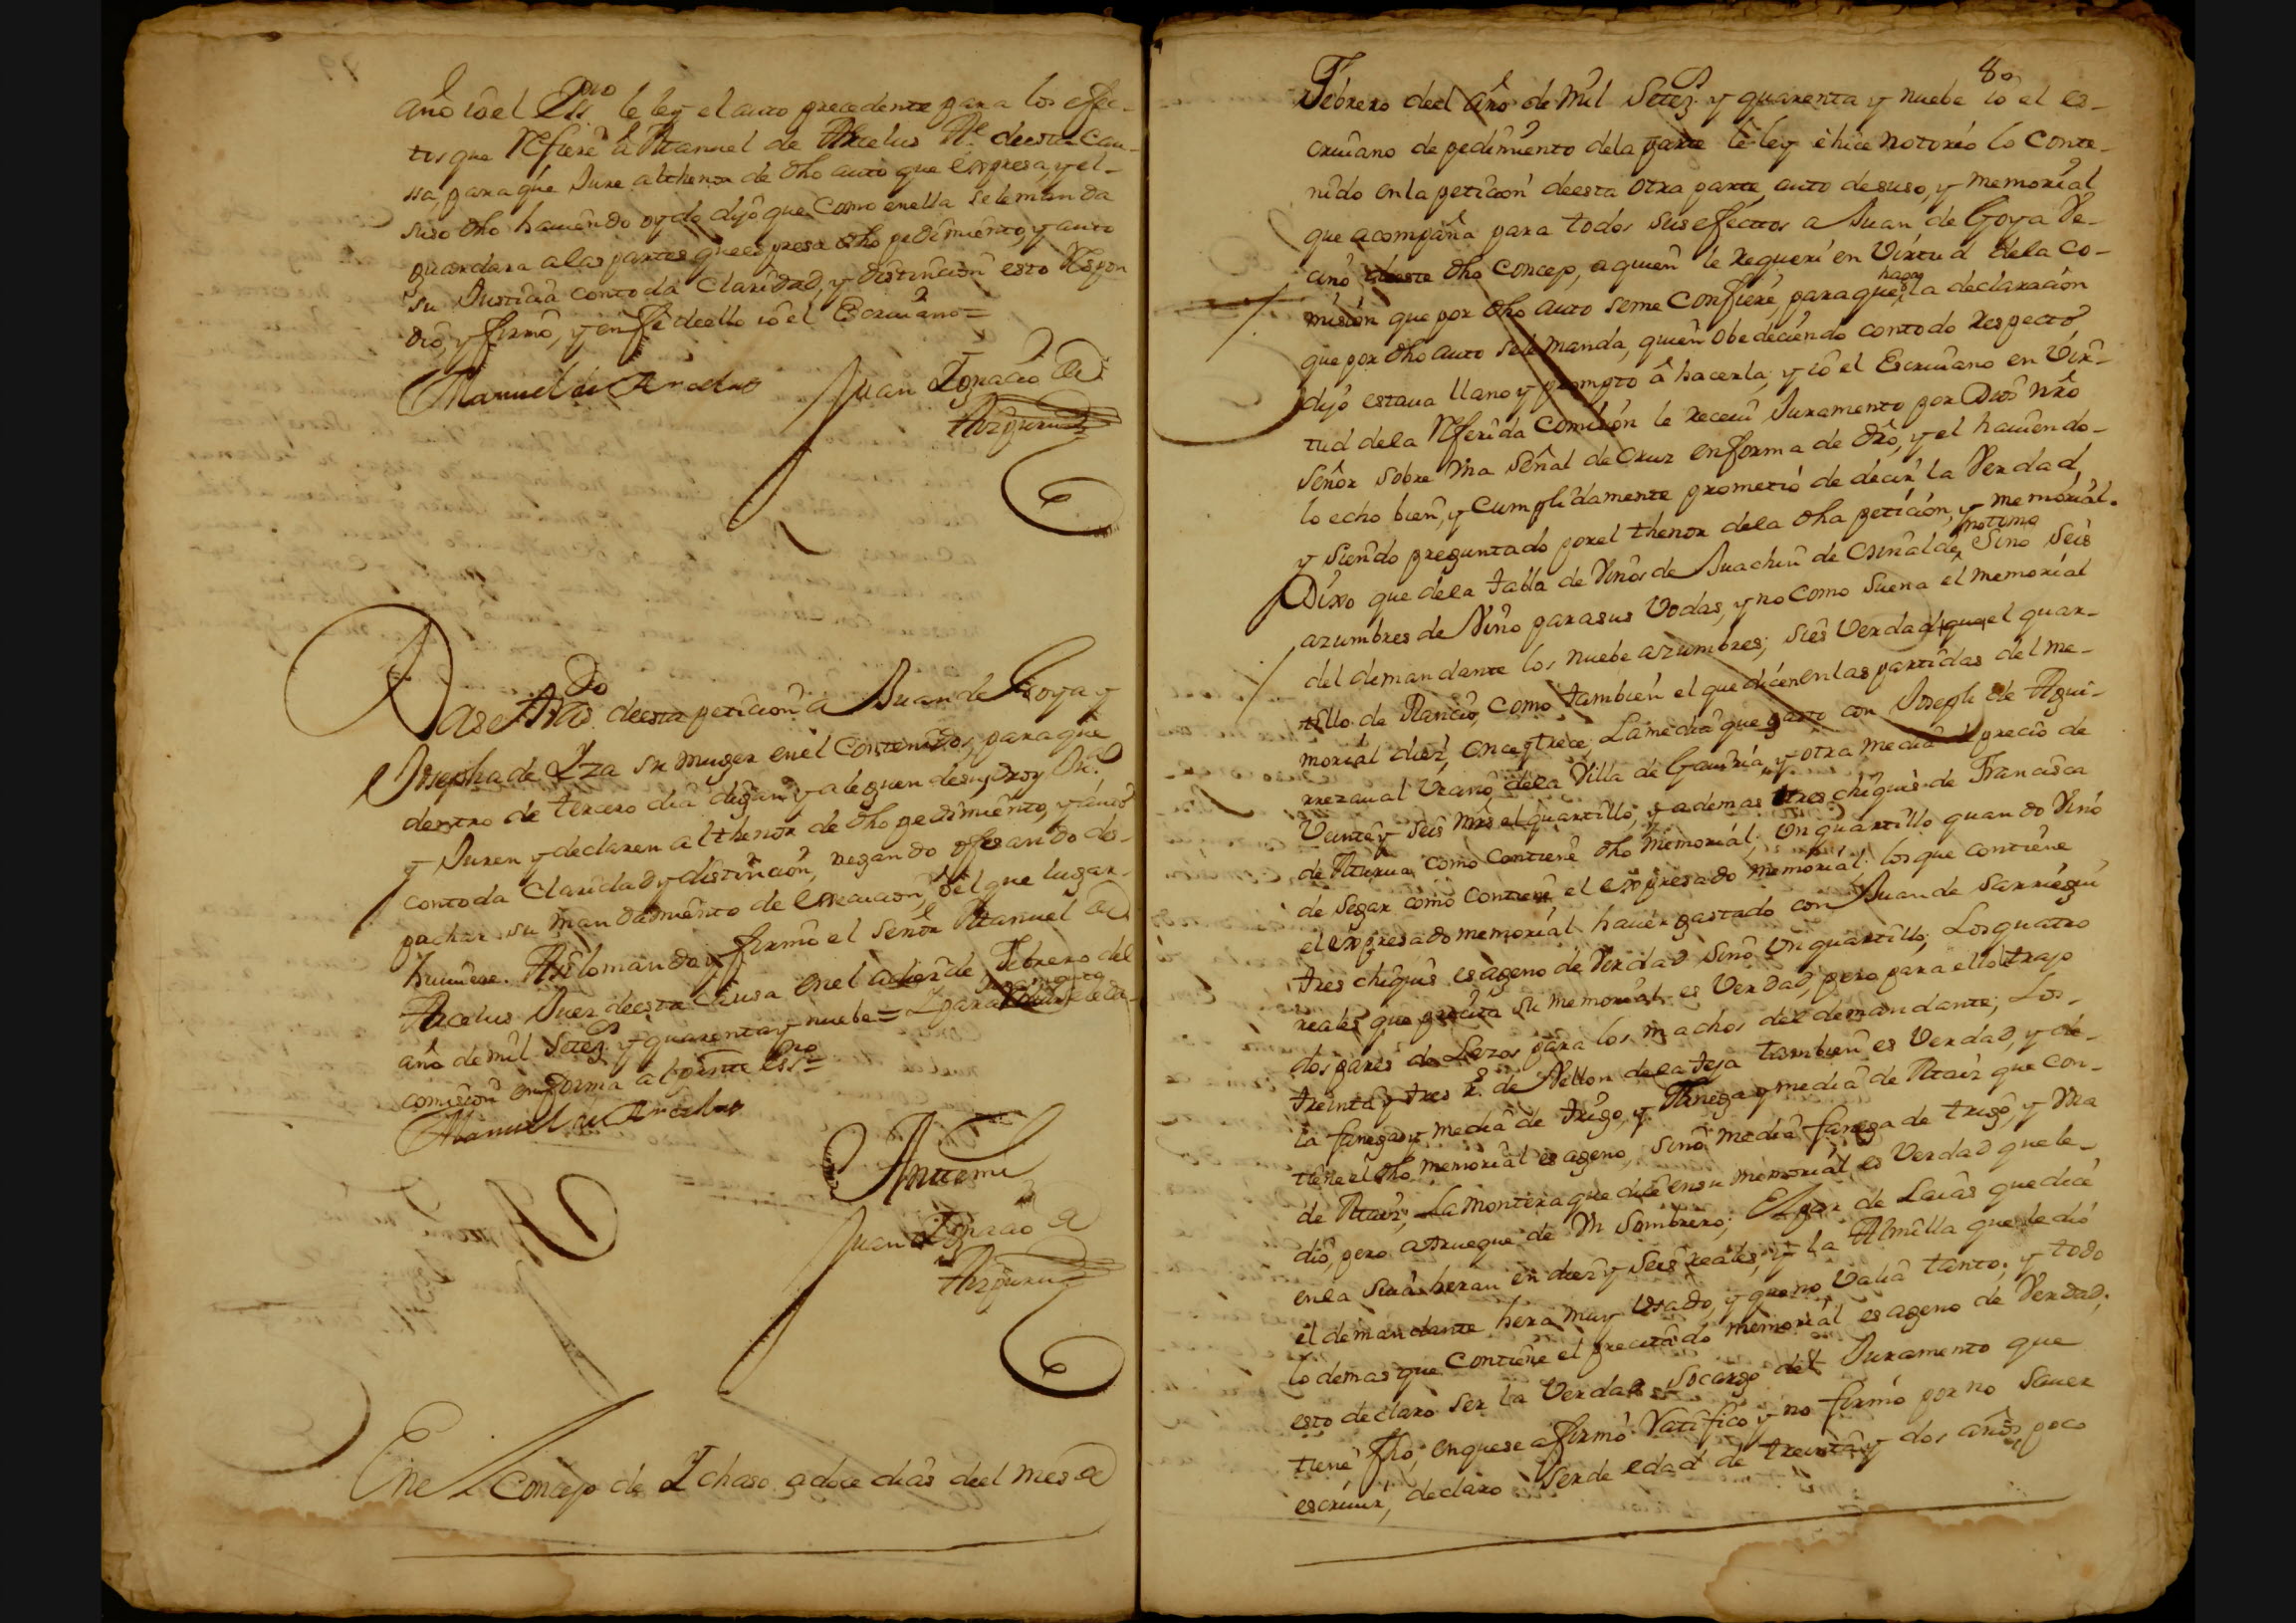 año io el Ess.no le ley el auto precedente para los efec-
tos que Refiere â Manuel de Arcelus Al.e deesta Cau-
ssa, para que Jure al thenor de dho auto que expresa, y el-
suso dho hauiendo oydo dijo que como en ella se le manda
guardara a las partes que expresa dho pedimiento, y auto
su Justicia con toda Claridad, y distincion esto Respon
diô, y firmô, y en fê deello io el Escriuano =
Manuel de Arcelus Juan Ignacio de
Aizpuru
Dase Tras.do deesta peticion â Juan de Goya y
Josepha de Yza su muger en el Contenidos, para que
dentro de tercero dia digan y aleguen de su
y Juren y declaren al thenor de dho pedimiento, y auto
con toda claridad y distincion, negando o fesando des-
pachar su mandamiento de execucion, del que lugar
huuiere. Asi lo mando y firmô el Señor Manuel de
Arcelus Juez deesta Causa en el a doze de Febrero del
año de mil Setez.s y quarenta y nuebe = y para se le da
comision en forma al preste Ess.no =
Manuel de Arcelus
Antemi
Juan Ignacio de
Aizpuru
En el Concejo de Ychaso a doce dias deel mes de
80
Febrero deel año de Mil Setez.s y quarenta y nuebe io el es-
criuano de pedimiento dela parte le ley ê hice notorio lo Conte-
nido en la peticion deesta otra parte, auto de suso, y memorial
que acompaña para todos sus efectos a Juan de Goya Ve-
cino deeste dho Concejo, a quien le Requeri en Virtud dela Co-
haga
mision que por dho auto se me Confiere, para que la declaracion
que por dho auto se le manda, quien obedeciendo con todo Respecto,
dijo estaua llano y prompto â hacerla, y io el Escriuano en Vir-
tud dela Referida Comision le Receui Juramento por Dios nro
Señor sobre Vna Señal de Cruz en forma de dro, y el hauiendo-
lo echo bien, y Cumplidamente prometiô de decir la Verdad,
y Siendo preguntado por el thenor dela dha peticion, y memorial.
no tomo
Dixo que dela tabla de Vinos de Juachin de Osinalde, Sino Seis
azumbres de Vino para sus Vodas, y no como Suena el memorial
del demandante los nuebe azumbres; si es Verdad que el quar-
tillo de Rancio, como tambien el que dicen en las partidas del me-
morial diez, once y trece; La media que gasto con Joseph de Agui-
rrezaual Vecino dela Villa de Gauiria, y otra media â precio de
Veinte y Seis mrs el quartillo, y ademas tres chiquis de Francisca
de Aturua como Contiene dho memorial; Un quartillo quando Vino
de Segar como Contiene el expresado memorial: los que contiene
el expresado memorial hauer gastado con Juan de Sarriegui
tres chiquis es ageno de Verdad Sino Un quartillo; Los quatro
reales que su memorial es Verdad, pero para ello trajo
dos pares de Lazos para los machos del demandante; Los
treinta y tres R.s de Vellon dela teja tambien es Verdad, y de-
la fanega y media de trigo, y fanega y media de Maiz que con-
tiene el dho memorial es ageno, Sino media fanega de trigo, y Vna
de Maiz; La montera que dice en su memorial es Verdad que le-
dio, pero a trueque de Vn Sombrero; El par de Laias que dice
en la heran en diez y Seis reales, y la Almilla que le dio
el demandante hera muy Vsado, y que no Valia tanto; y todo
lo demas que Contiene el precitado memorial es ageno de Verdad;
esto declaro Ser la Verdad Socargo del Juramento que
tiene fho, en que se afirmô Ratificô y no firmo por no Sauer
escriuir, declaro Ser de edad de treinta y dos años, poco